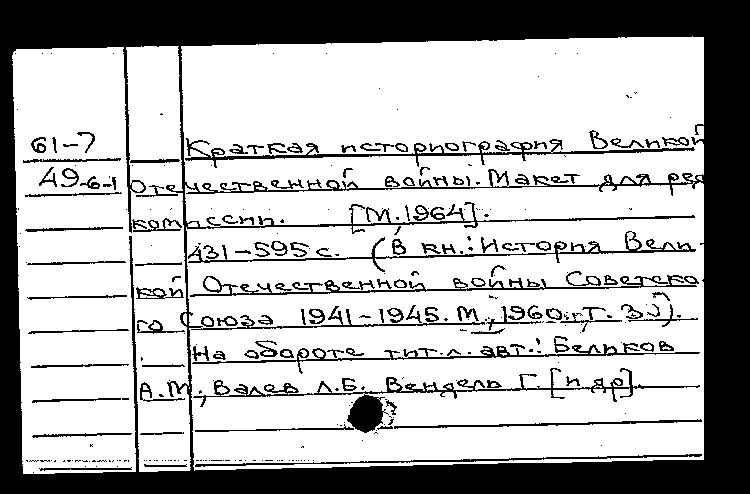 61-7 Краткая историография Великой
49-6-1 Отечественной войны. Макет для ред
комиссии. [М. 1964].
431-595 с. (В кн.: История Вели-
кой Отечественной войны Советско-
го Союза 1941-1945. М., 1960. Т. 3).
На обороте тит. л. авт.: Беликов
А.М., Валев Л.Б. Вендель Г. [и др].